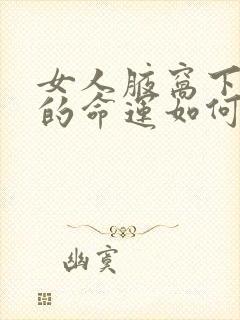 女人腋窝下
的命运如何
幽冥